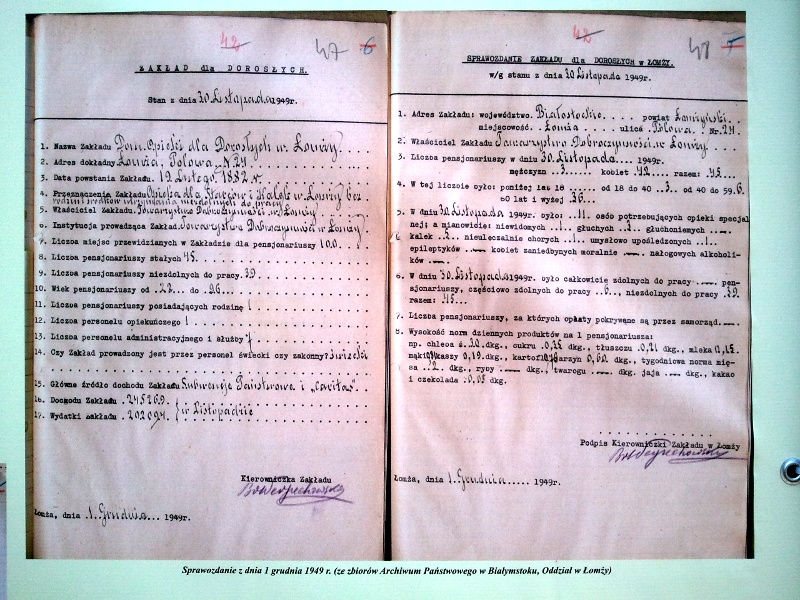 42 47 6
ZAKŁAD dla DOROSŁYCH.
Stan z dnia 30 Listopada 1949r.
1. Nazwa Zakładu Dom Opieki dla Dorosłych w Łomży
2. Adres dokładny Łomża, Polowa N 24
3. Data powstania Zakładu. 19 Lutego 1882 r.
4. Przeznaczenie Zakładu Opieka dla Starców i Kalek w Łomży bez
rodzin i środków utrzymania niezdolnych do pracy
5. Właściciel Zakładu. Towarzystwo Dobroczynności w Łomży
6. Instytucja prowadząca Zakład. Towarzystwo Dobroczynności w Łomży
7. Liczba miejsc przewidzianych w Zakładzie dla pensjonariuszy 100
8. Liczba pensjonariuszy stałych 45
9. Liczba pensjonariuszy niezdolnych do pracy. 39
10. Wiek pensjonariuszy od ..23... do ..96...
11. Liczba pensjonariuszy posiadających rodzinę 1
12. Liczba personelu opiekuńczego 1
13. Liczba personelu administracyjnego i służby 7
14. Czy Zakład prowadzony jest przez personel świecki czy zakonny? świecki
15. Główne źródło dochodu Zakładu Subwencje Państwowe i "Caritas"
16. Dochodu Zakładu . 245269.
17. Wydatki Zakładu . 202094. } w Listopadzie
Kierowniczka Zakładu
Łomża, dnia .1. Grudnia... 1949r.
42 48 7
SPRAWOZDANIE ZAKŁADU dla DOROSŁYCH w ŁOMŻY.
w/g stanu z dnia 30 Listopada 1949r.
1. Adres Zakładu: województwo. Białostockie. . . . powiat Łomżyński.
miejscowość. Łomża . ulica Polowa. Nr. 24.
2. Właściciel Zakładu Towarzystwo Dobroczynności w Łomży
3. Liczba pensjonariuszy w dniu 30. Listopada .... 1949r.
mężczyzn ..3.... kobiet 42.... razem: 45...
4. W tej liczbie było: poniżej lat 18 ...... od 18 do 40 ..3.. od 40 do 59.6
60 lat i wyżej .36...
5. W dniu 30. Listopada 1949r. było: .. 11. osób potrzebujących opieki specjal
nej; a mianowicie: niewidomych ..1. głuchych .2. głuchoniemych —.
kalek .2.. nieuleczalnie chorych .1.. umysłowo upośledzonych ..1..
epileptyków .—.. kobiet zaniedbanych moralnie .—. nałogowych alkoholi-
ków .—.
6. W dniu 30. Listopada 1949r. było całkowicie zdolnych do pracy .—. pen-
sjonariuszy, częściowo zdolnych do pracy ..6.., niezdolnych do pracy .39.
razem: 45...
7. Liczba pensjonariuszy, za których opłaty pokrywane są przez samorząd. —.
8. Wysokość norm dziennych produktów na 1 pensjonariusza:
np. chleba dkg., cukru dkg., tłuszczu 0,21 dkg., mleka
mąki kaszy 0,19 dkg., kartofli jarzyn 0,60 dkg., tygodniowa norma mię-
sa .2.. dkg., ryby .—. dkg., twarogu .—. dkg. jaja .—. dkg., kakao
i czekolada 0,05 dkg.
Podpis Kierowniczki Zakładu w Łomży
Łomża, dnia .1. Grudnia .... 1949r.
Sprawozdanie z dnia 1 grudnia 1949 r. (ze zbiorów Archiwum Państwowego w Białymstoku, Oddział w Łomży)